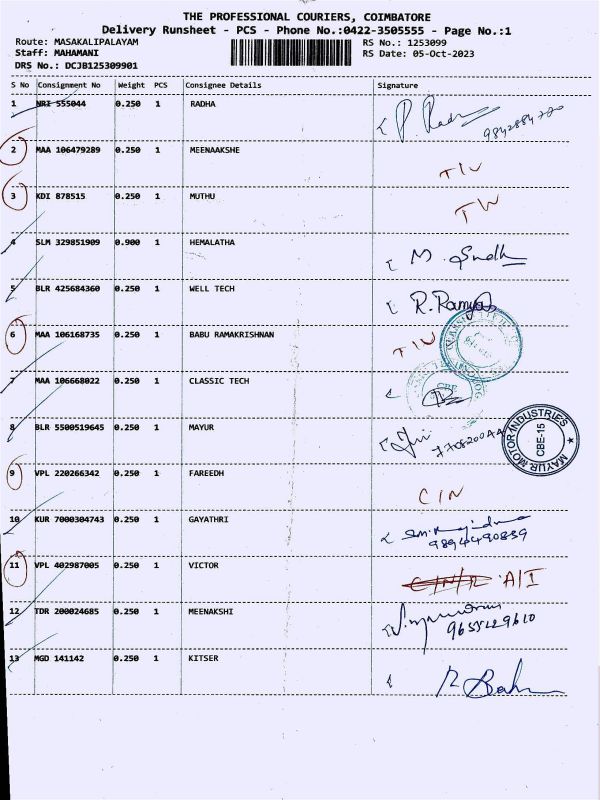 THE PROFESSIONAL COURIERS, COIMBATORE
Delivery Runsheet - PCS - Phone No.:0422-3505555 - Page No.:1
Route: MASAKALIPALAYAM
RS No.: 1253099
Staff: MAHAMANI
RS Date: 05-Oct-2023
DRS No.: DCJB125309901
S No Consignment No Weight PCS Consignee Details Signature
1 NRI 555044 0.250 1 RADHA
2 MAA 106479289 0.250 1 MEENAAKSHE
3 KDI 878515 0.250 1 MUTHU
4 SLM 329851909 0.900 1 HEMALATHA
5 BLR 425684360 0.250 1 WELL TECH R. Ramya
6 MAA 106168735 0.250 1 BABU RAMAKRISHNAN
7 MAA 106668022 0.250 1 CLASSIC TECH
CBE
8 BLR 5500519645 0.250 1 MAYUR
MAYUR MOTOR INDUSTRIES
CBE-15
9 VPL 220266342 0.250 1 FAREEDH
CIN
10 KUR 7000304743 0.250 1 GAYATHRI
9894490839
11 VPL 402987005 0.250 1 VICTOR
A/I
12 TDR 200024685 0.250 1 MEENAKSHI
9655129610
13 MGD 141142 0.250 1 KITSER